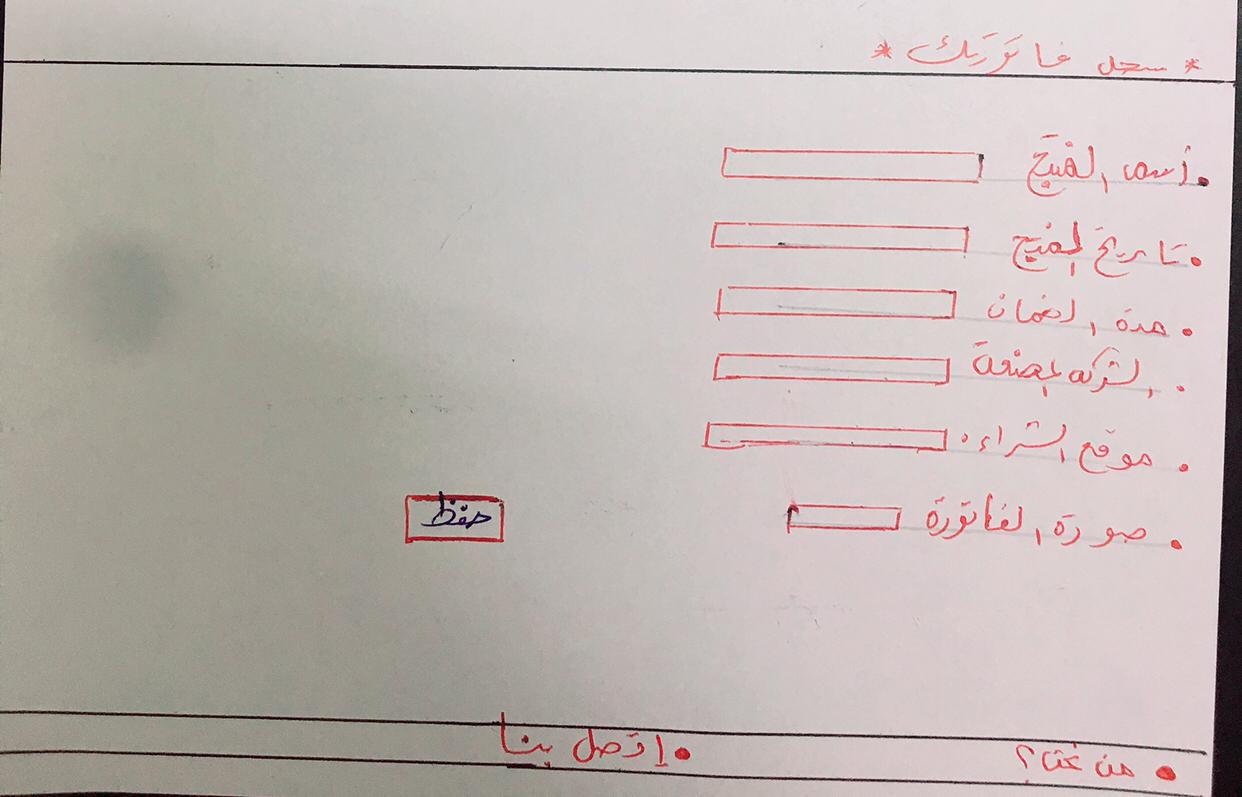 * سجل فاتورتك *
• أسم المنتج
• تاريخ المنتج
• مدة الضمان
• الشركه المصنعة
• موقع الشراء:
• صورة الفاتورة
حفظ
• من نحن؟ • إتصل بنا